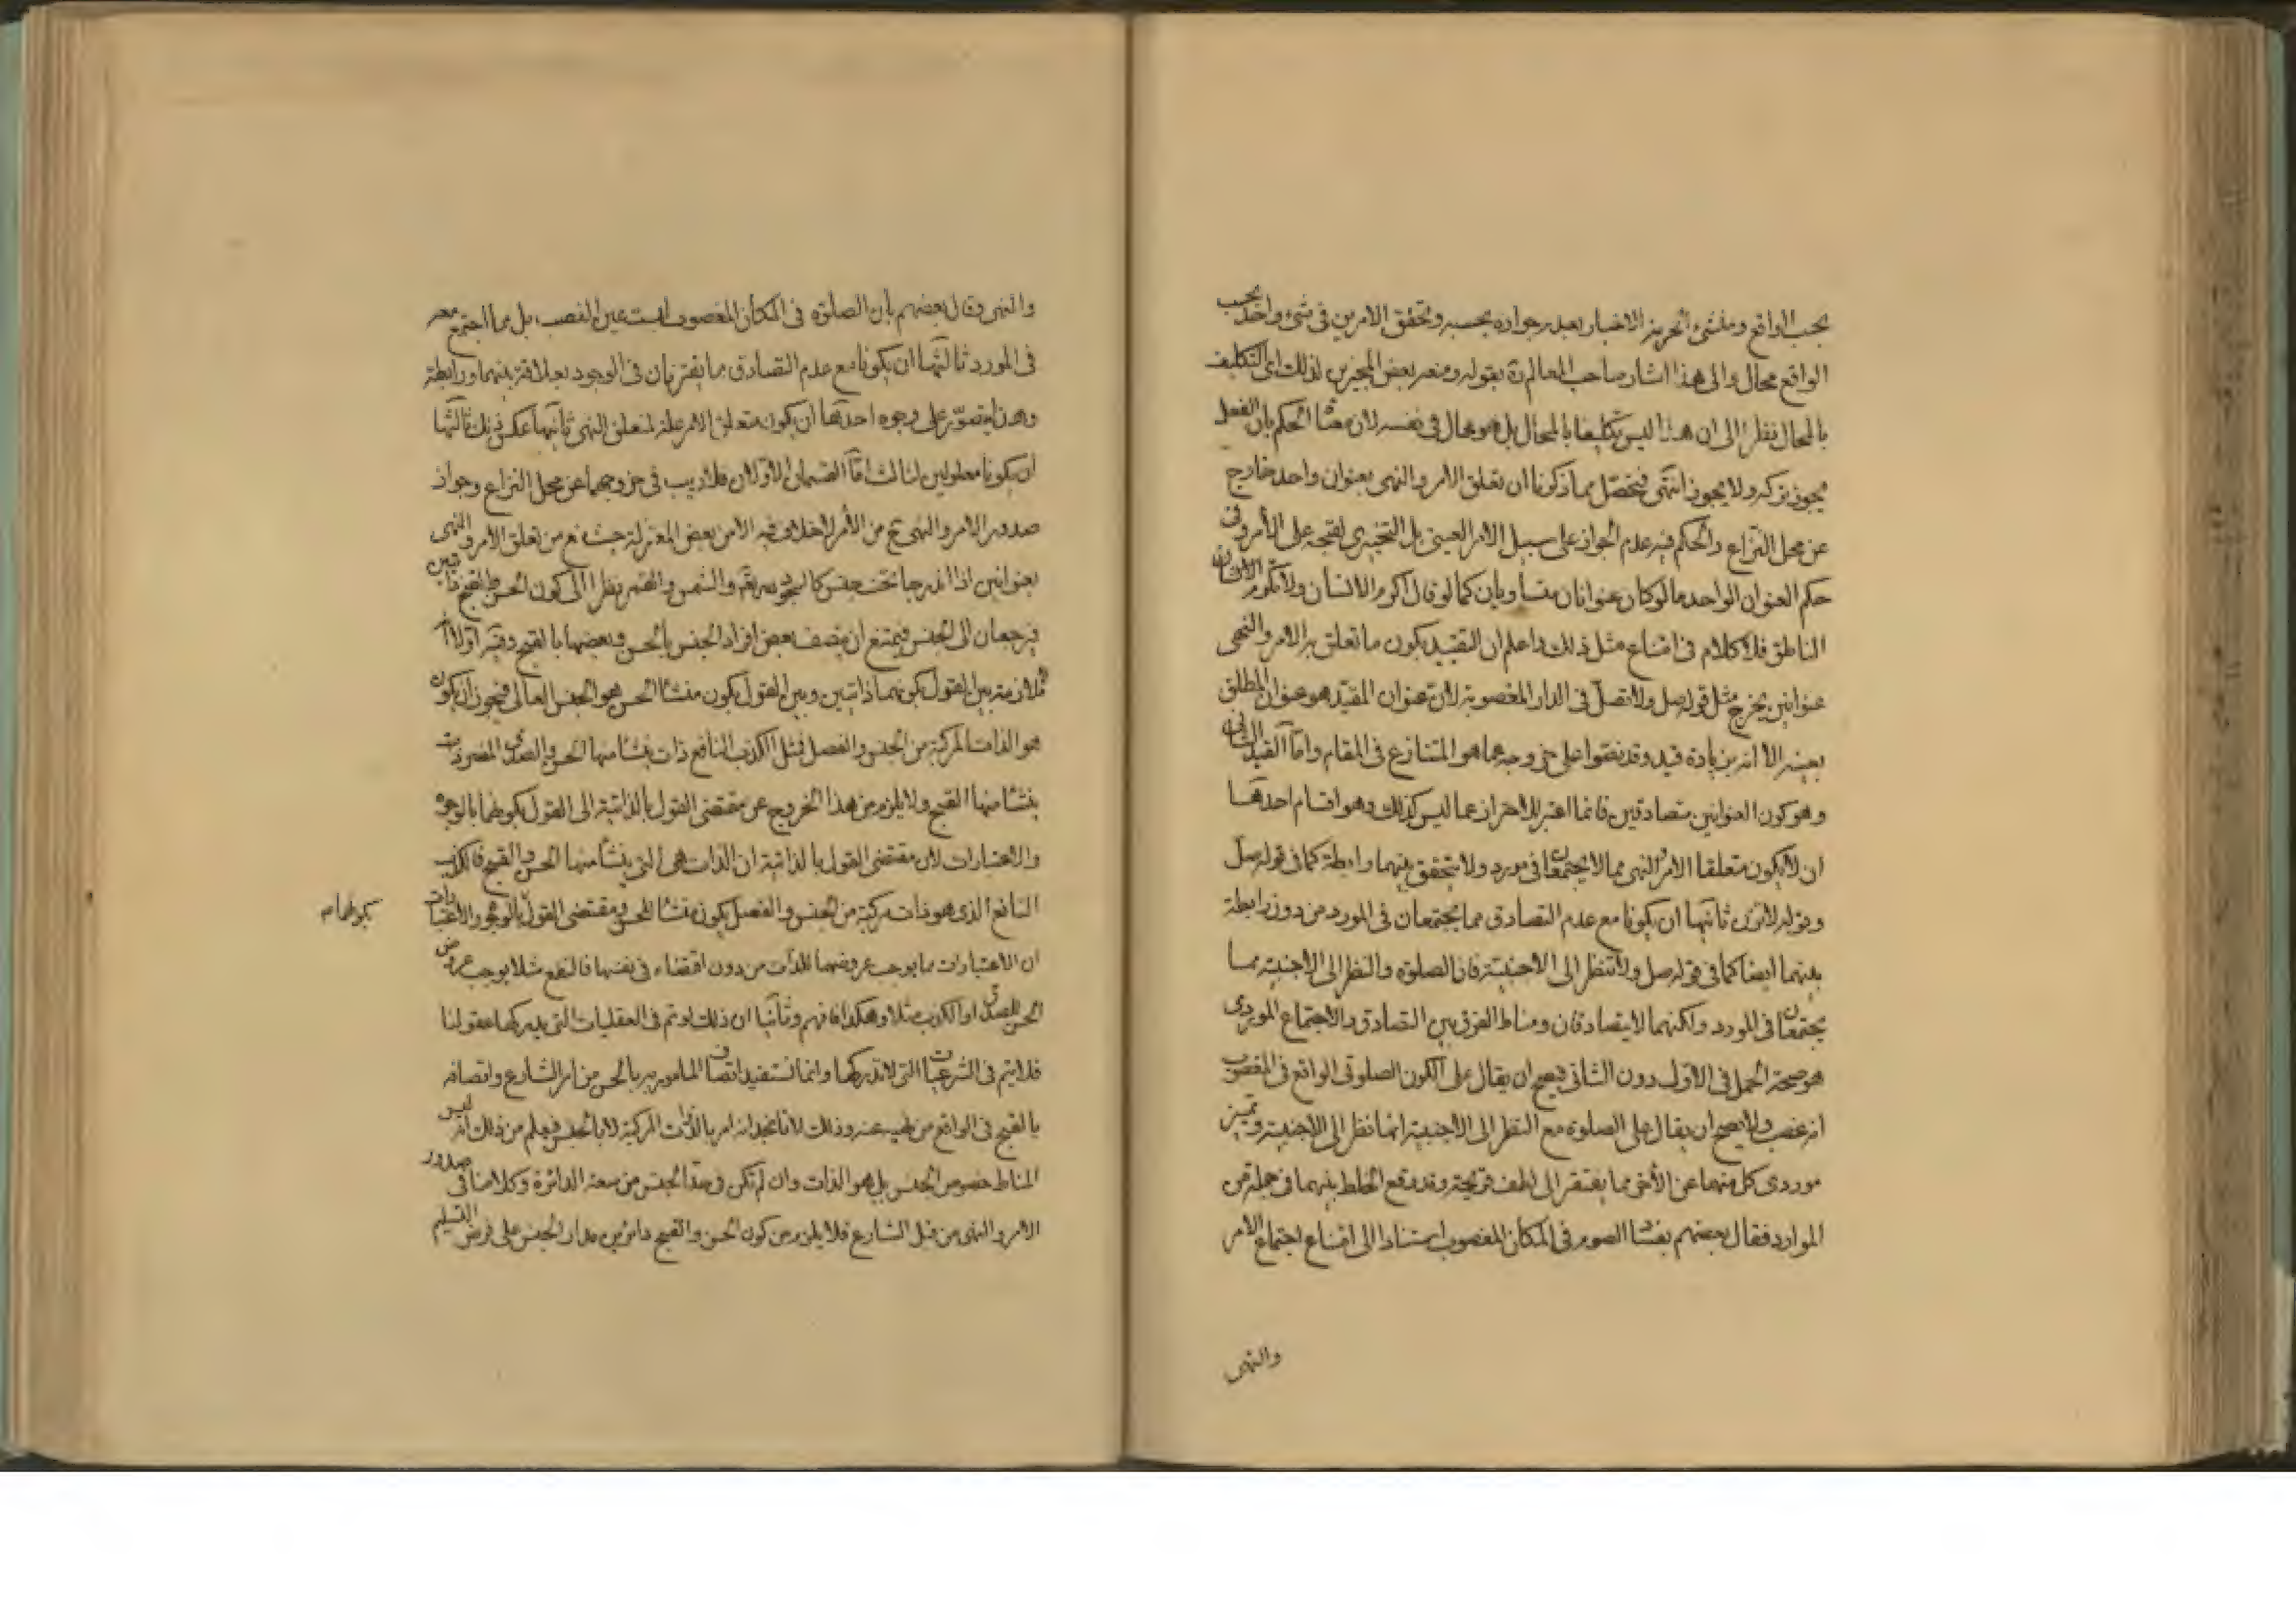 بحسب الواقع ومنشئ التحريز الاخبار بعدم جوازه بحسبه وتحقق الامرين فى شىء واحد بحسب
الواقع محال والى هذا اشار صاحب المعالم ره بقوله ومنعه بعض المجيزين لذلك اى التكليف
بالمحال نظرا الى ان هذا ليس تكليفا بالمحال بل هو محال فى نفسه لان معناه الحكم بان الفعل
يجوز تركه ولا يجوز انتهى فتحصل مما ذكرنا ان تعلق الامر والنهى بعنوان واحد خارج
عن محل النزاع والحكم فيه عدم الجواز على سبيل الامر العينى بل التخييرى لقبحه على الأمر وفى
حكم العنوان الواحد ما لو كان عنوانان متساويان كما لو قال اكرم الانسان ولا تكرم الانسان
الناطق فلا كلام فى امتناع مثل ذلك واعلم ان التقييد بكون ما تعلق به الامر والنهى
عنوانين يخرج مثل قوله صل ولا تصل فى الدار المغصوبة لان عنوان المقيد هو عنوان المطلق
بعينه الا انه بزيادة قيد وقد نصوا على خروجه عما هو المتنازع فى المقام واما القيد الثانى
وهو كون العنوانين متصادقين فانما اعتبر للاحتراز عما ليس كذلك وهو اقسام احدها
ان لا يكون متعلقا الامر والنهى مما لا يجتمعان فى مورد ولا يتحقق بينهما رابطة كما فى قوله صل
وقوله لا تزن ثانيها ان يكونا مع عدم التصادق مما يجتمعان فى المورد من دون رابطة
بينهما ايضا كما فى قوله صل ولا تنظر الى الاجنبية فان الصلوة والنظر الى الاجنبية مما
يجتمعان فى المورد ولكنهما لا يتصادقان ومناط الفرق بين التصادق والاجتماع الموردى
هو صحة الحمل فى الاول دون الثانى فيصح ان يقال على الكون الصلوتى الواقع فى المغصوب
انه غصب ولا يصح ان يقال على الصلوة مع النظر الى الاجنبية انها نظر الى الاجنبية وتميز
موردى كل منهما عن الأخر مما يفتقر الى لطف قريحة وقد وقع الخلط بينهما فى جملة من
الموارد فقال بعضهم بفساد الصوم فى المكان المغصوب استنادا الى امتناع اجتماع الامر
والنهى
والنهى وقال بعضهم بان الصلوة فى المكان المغصوب ليست عين الغصب بل مما اجتمع معه
فى المورد ثالثها ان يكونا مع عدم التصادق مما يقترنان فى الوجود بعلاقة بينهما ورابطة
وهذا يتصور على وجوه احدها ان يكون متعلق الامر علة لمتعلق النهى ثانيها عكس ذلك ثالثها
ان يكونا معلولين لثالث اما القسمان الاولان فلا ريب فى خروجهما عن محل النزاع وجواز
صدور الامر والنهى من الأمر لا خلاف فيه الا من بعض المعتزلة حيث منع من تعلق الامر والنهى
بعنوانين اذا اندرجا تحت جنس كالسجود لله والشمس والقمر نظرا الى كون الحسن والقبح ذاتيين
فيرجعان الى الجنس فيمتنع ان يتصف بعض افراد الجنس بالحسن وبعضها بالقبح وفيه اولا انه
لا ملازمة بين القول بكونهما ذاتيين وبين القول بكون منشأ الحسن هو الجنس العالى فيجوز ان يكون
هو الذات المركبة من الجنس والفصل فمثل الكذب النافع ذات ينشأ منها الحسن والصدق المضر ذات
ينشأ منها القبح ولا يلزم من هذا الخروج عن مقتضى القول بالذاتية الى القول بكونهما بالوجوه
والاعتبارات لان مقتضى القول بالذاتية ان الذات هى التى ينشأ منها الحسن والقبح فالكذب
النافع الذى هو ذات مركبة من الجنس والفصل يكون منشأ للحسن ومقتضى القول بالوجوه والاعتبارات
بكونهما م
ان الاعتبارات مما يوجب عروضهما للذات من دون اقتضاء فى نفسها فالنفع مثلا يوجب عروض
الحسن للصدق او الكذب مثلا وهكذا فافهم وثانيا ان ذلك لو تم فى العقليات التى يدركها عقولنا
فلا يتم فى الشرعيات التى لا تدركها وانما نستفيد اتصاف المامور به بالحسن من امر الشارع واتصافه
بالقبح فى الواقع من نهيه عنه وذلك لانا نجد انه امر بالذات المركبة لا بالجنس فيعلم من ذلك انه ليس
المناط خصوص الجنس بل هو الذات وان لم تكن فى الجنس من سعة الدائرة وكلامنا فى صدور
الامر والنهى من قبل الشارع فلا يلزم من كون الحسن والقبح دائرين مدار الجنس على فرض التسليم